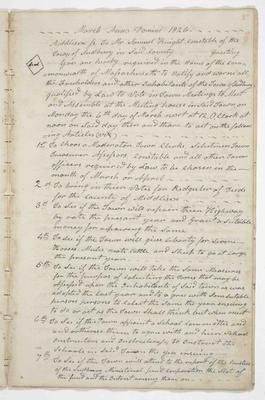 March Anno Domini 1826
Middlesex Ss To Mr Samuel Knight constable of the
Town of Sudbury in said County Greeting
You are hereby required in the Name of the com-
monwealth of Massachusetts to Notify and warn all
the Freeholders and other Inhabitants of the Town of Sudbury
qualified by Law to Vote in Town Meetings to Meet
and Assemble at the Meeting house in said Town, on
Monday the 6th day of March next at 12 O Clock at
noon on said day then and thare to act on the follow-
ing Articles (viz)
1st To choose a Moderator Town Clerk Selectmen Town
Treasurer Assessors Constable and all other Town
officers required by Law to be chosen in the
month of March or April
2nd To bring in their Votes for Register of Deeds
for the County of Middlesex
3d To see if the Town will repair their Highway
by rate the present year and Grant a suitable
money for repairing the same
4th To see if the Town will give liberty for Swine
Horses Mules neate cattle and Sheep to go at large
the present year
5th To see if the Town will take the Same Measures
for the purpose of collecting the taxes that may be
assessed upon the Inhabitants of said town as was
adopted the last year and to agree with some suitable
person or persons to collect the same the year ensuing
to do or act as the Town Shall think best when met
6th To see if the Town appoint a School Committee and
and authorise them to agree with and hire School
instructors and Instructresses to instruct the
Schools in said Town the year ensuing
7th To see if the Town will attend to the report of the trustees
of the Sudbury Ministerial fund corporation the State of
the fund and the Interest arising thare on